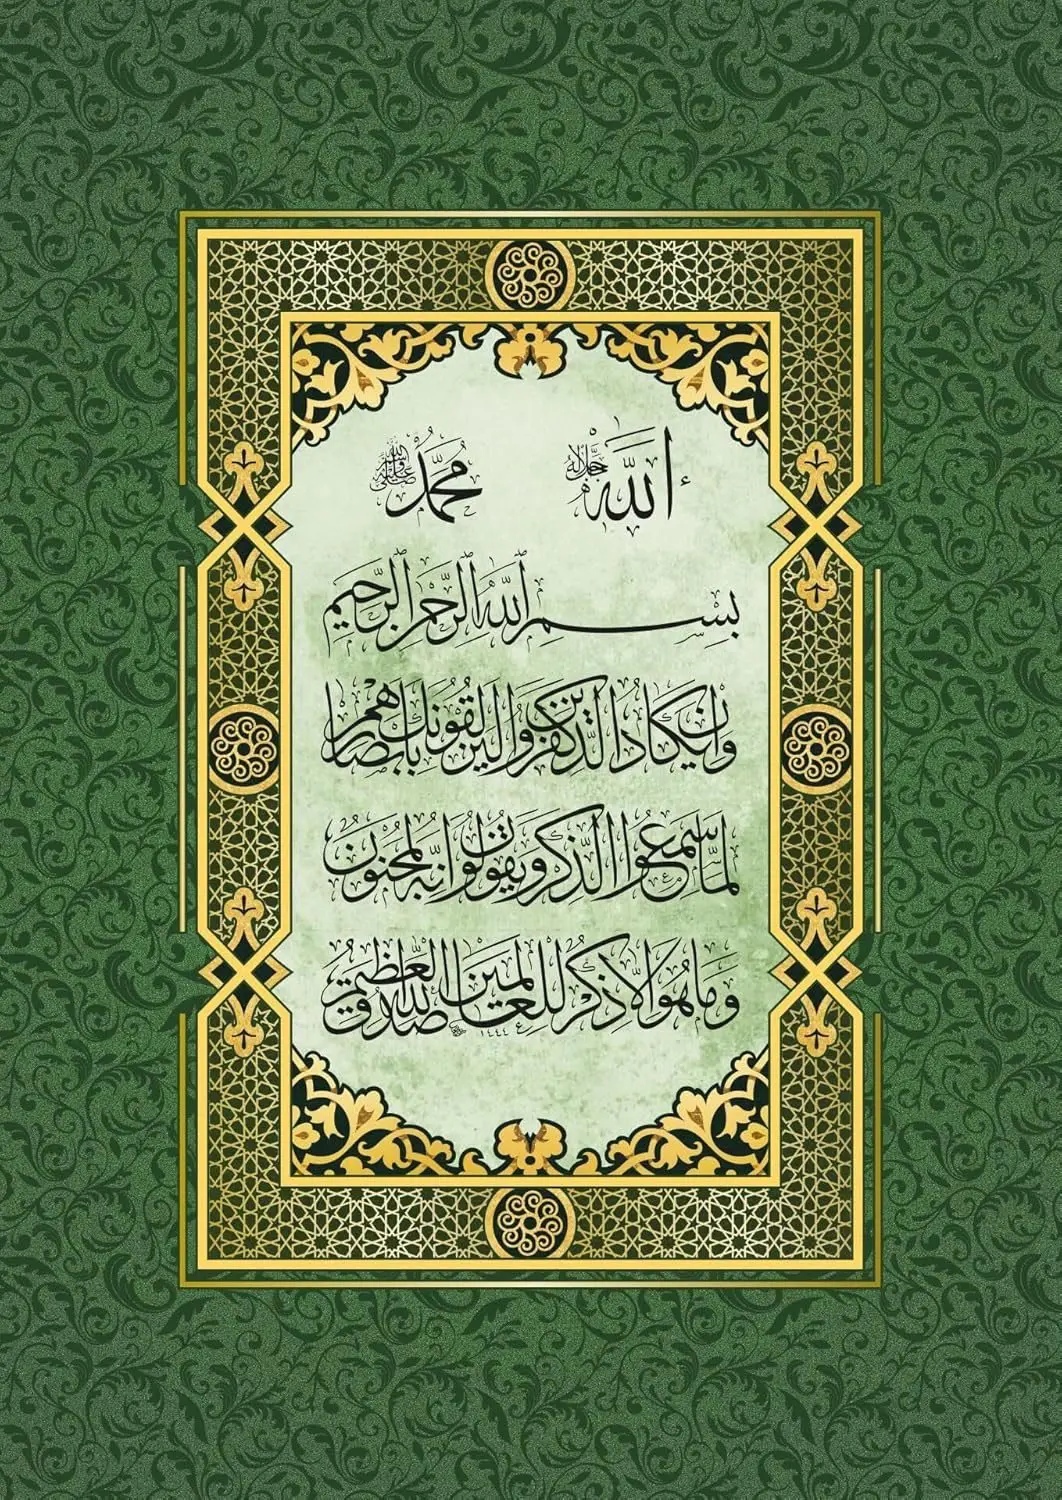 الله جل جلاله محمد صلى الله عليه وسلم
بِسْمِ اللَّهِ الرَّحْمَنِ الرَّحِيمِ
وَإِن يَكَادُ الَّذِينَ كَفَرُوا لَيُزْلِقُونَكَ بِأَبْصَارِهِمْ
لَمَّا سَمِعُوا الذِّكْرَ وَيَقُولُونَ إِنَّهُ لَمَجْنُونٌ
وَمَا هُوَ إِلَّا ذِكْرٌ لِلْعَالَمِينَ صدق الله العظيم
١٤٤٤